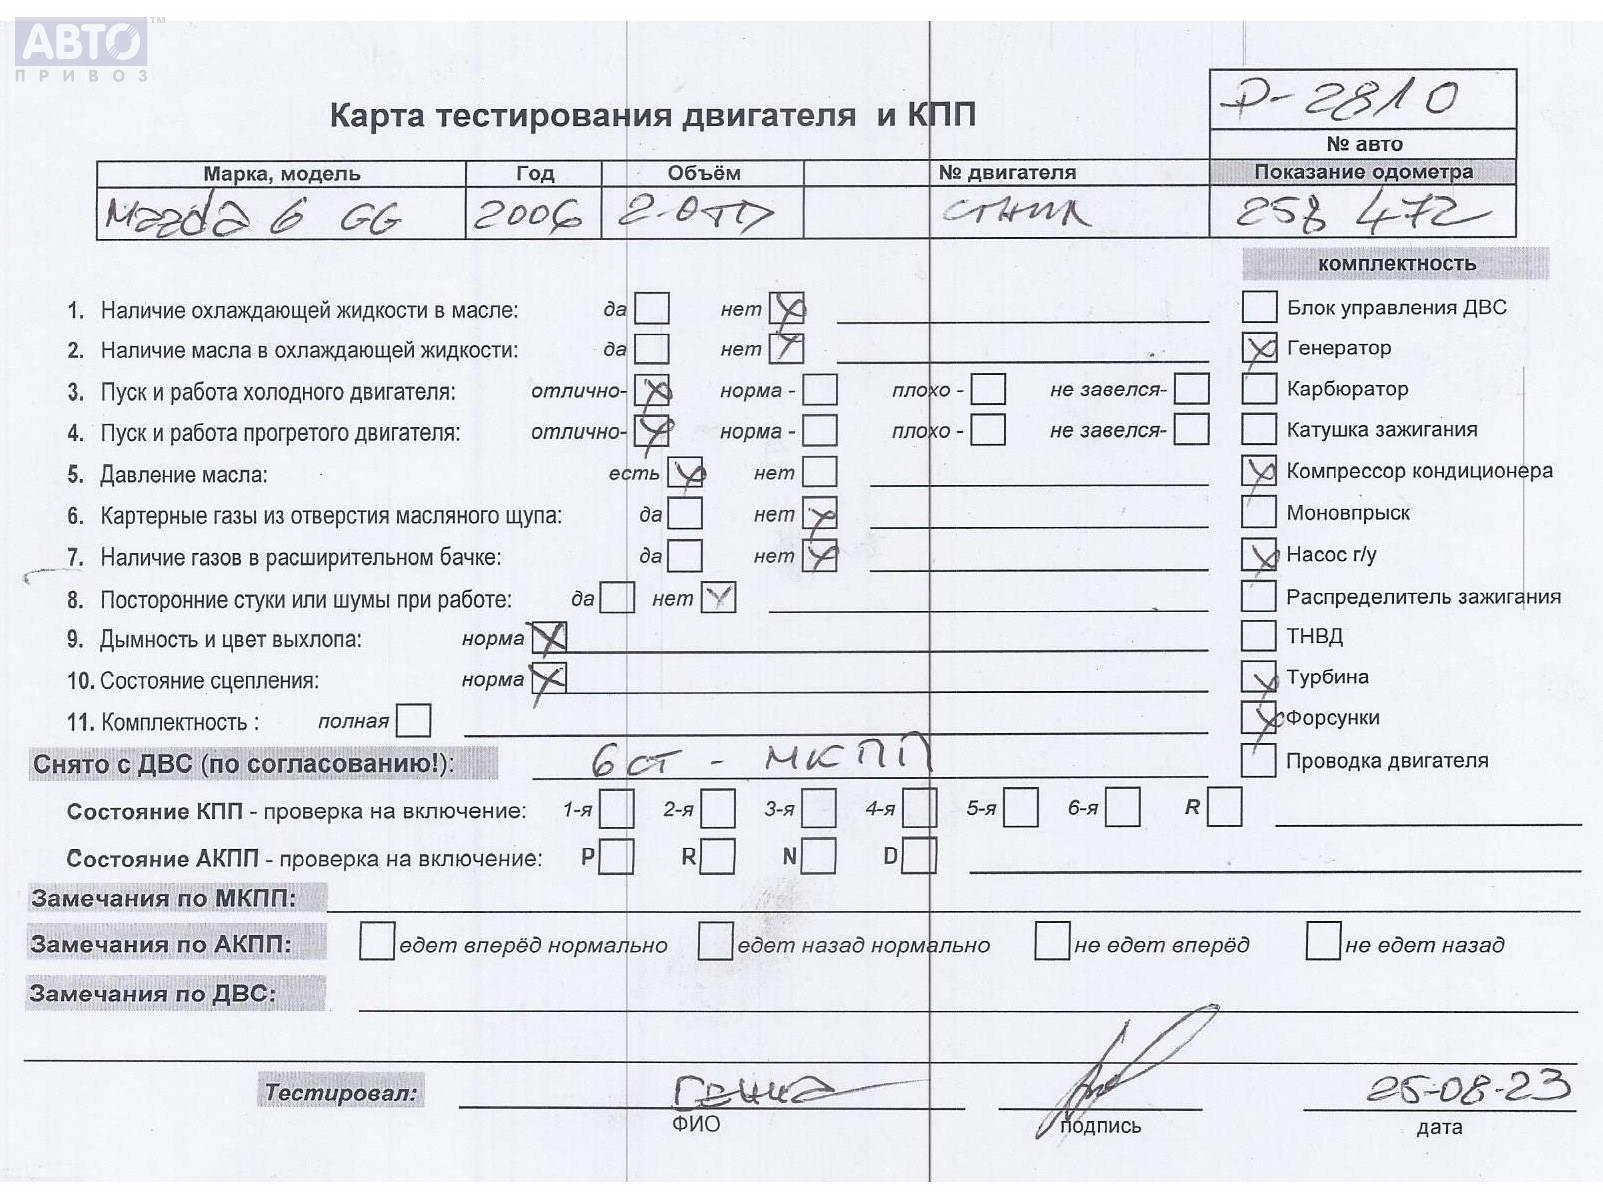 АВТО™
ПРИВОЗ
Р-2810
Карта тестирования двигателя и КПП
№ авто
Марка, модель Год Объём № двигателя Показание одометра
Mazda 6 GG 2006 2-0TD 258 472
комплектность
1. Наличие охлаждающей жидкости в масле: да нет Блок управления ДВС
2. Наличие масла в охлаждающей жидкости: да нет Генератор
3. Пуск и работа холодного двигателя: отлично- норма - плохо - не завелся- Карбюратор
4. Пуск и работа прогретого двигателя: отлично- норма - плохо - не завелся- Катушка зажигания
5. Давление масла: есть нет Компрессор кондиционера
6. Картерные газы из отверстия масляного щупа: да нет Моновпрыск
7. Наличие газов в расширительном бачке: да нет Насос г/у
8. Посторонние стуки или шумы при работе: да нет Распределитель зажигания
9. Дымность и цвет выхлопа: норма ТНВД
10. Состояние сцепления: норма Турбина
11. Комплектность : полная Форсунки
Снято с ДВС (по согласованию!): 6 ст - МКПП Проводка двигателя
Состояние КПП - проверка на включение: 1-я 2-я 3-я 4-я 5-я 6-я R
Состояние АКПП - проверка на включение: P R N D
Замечания по МКПП:
Замечания по АКПП: едет вперёд нормально едет назад нормально не едет вперёд не едет назад
Замечания по ДВС:
Тестировал: 25-08-23
ФИО подпись дата